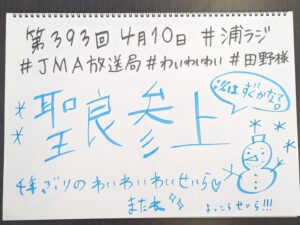 第393回 4月10日 #浦ラジ
#JMA放送局 #わいわいわい #田野様
聖良参上
次はすぐかなぁ
4年ぶりの わいわいわいせいら
またね
よっこらせいら!!!